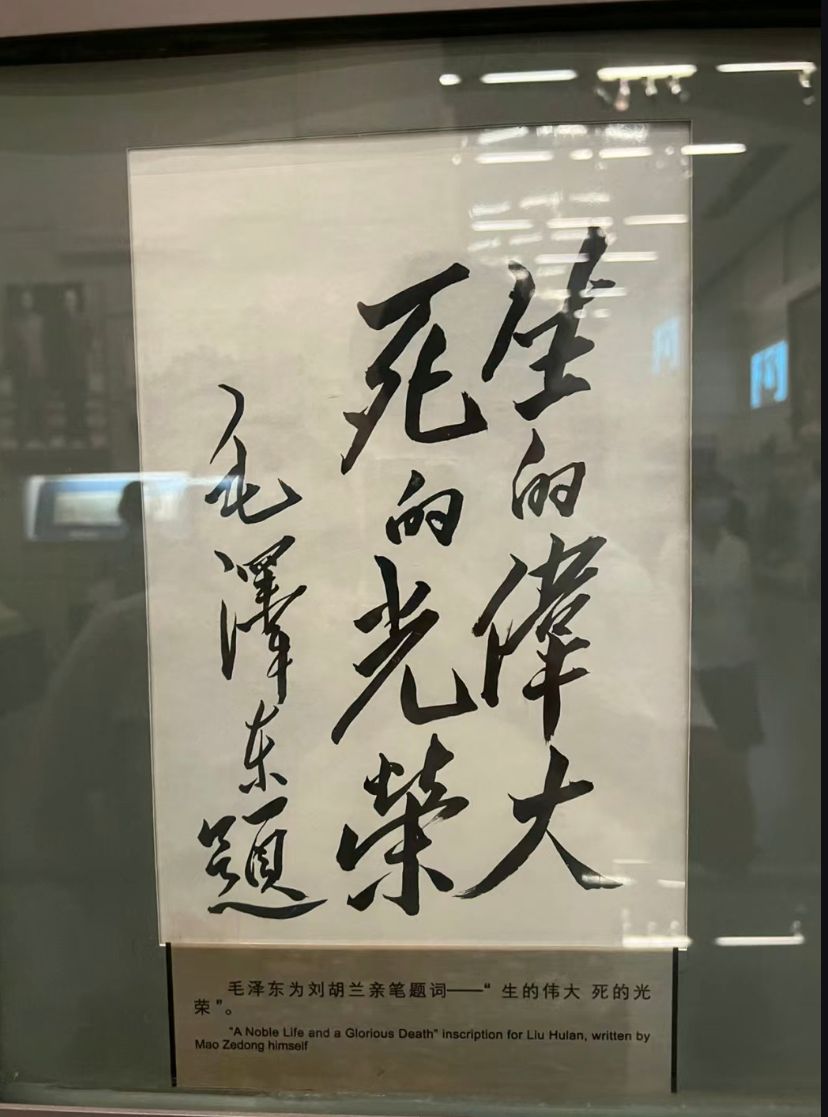 生的偉大
死的光榮
毛澤东題
毛泽东为刘胡兰亲笔题词——“生的伟大 死的光
荣”。
"A Noble Life and a Glorious Death" inscription for Liu Hulan, written by
Mao Zedong himself